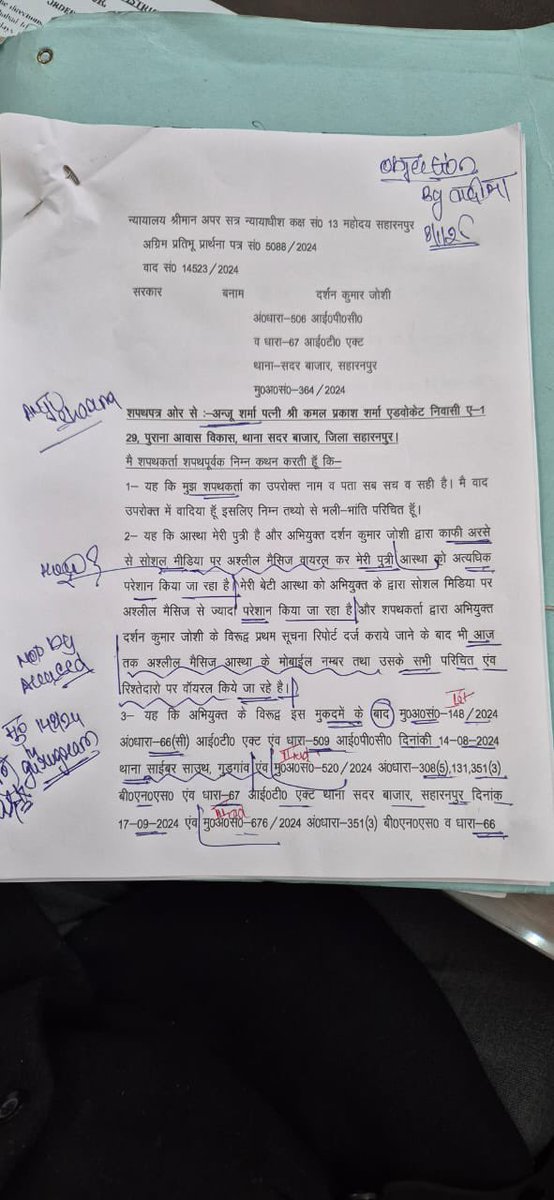 objection
By वादीया
न्यायालय श्रीमान अपर सत्र न्यायाधीश कक्ष सं0 13 महोदय सहारनपुर
अग्रिम प्रतिभू प्रार्थना पत्र सं0 5088/2024
वाद सं0 14523/2024
सरकार बनाम दर्शन कुमार जोशी
अं0धारा-506 आई0पी0सी0
व धारा-67 आई0टी0 एक्ट
थाना-सदर बाजार, सहारनपुर
मु0अ0सं0-364/2024
शपथपत्र ओर से :-अन्जू शर्मा पत्नी श्री कमल प्रकाश शर्मा एडवोकेट निवासी ए-1
29, पुराना आवास विकास, थाना सदर बाजार, जिला सहारनपुर।
मै शपथकर्ता शपथपूर्वक निम्न कथन करती हूँ कि-
1- यह कि मुझ शपथकर्ता का उपरोक्त नाम व पता सब सच व सही है। मै वाद
उपरोक्त में वादिया हूँ इसलिए निम्न तथ्यो से भली-भांति परिचित हूँ।
2- यह कि आस्था मेरी पुत्री है और अभियुक्त दर्शन कुमार जोशी द्वारा काफी अरसे
से सोशल मीडिया पर अश्लील मैसिज वायरल कर मेरी पुत्री आस्था को अत्यधिक
परेशान किया जा रहा है मेरी बेटी आस्था को अभियुक्त के द्वारा सोशल मिडिया पर
अश्लील मैसिज से ज्यादा परेशान किया जा रहा है और शपथकर्ता द्वारा अभियुक्त
दर्शन कुमार जोशी के विरूद्ध प्रथम सूचना रिपोर्ट दर्ज कराये जाने के बाद भी आज
तक अश्लील मैसिज आस्था के मोबाईल नम्बर तथा उसके सभी परिचित एंव
रिश्तेदारो पर वॉयरल किये जा रहे है।
Not by
Accused
Ist
3- यह कि अभियुक्त के विरूद्ध इस मुकदमें के बाद मु0अ0सं0-148/2024
मु0 148/24
Gurugram
अं0धारा-66(सी) आई0टी0 एक्ट एंव धारा-509 आई0पी0सी0 दिनांकी 14-08-2024
IInd
थाना साईबर साउथ, गुडगांव एंव मु0अ0स0-520/2024 अं0धारा-308(5),131,351(3)
बी0एन0एस0 एंव धारा-67 आई0टी0 एक्ट थाना सदर बाजार, सहारनपुर दिनांक
IIIrd
17-09-2024 एंव मु0अ0स0-676/2024 अं0धारा-351(3) बी0एन0एस0 व धारा-66